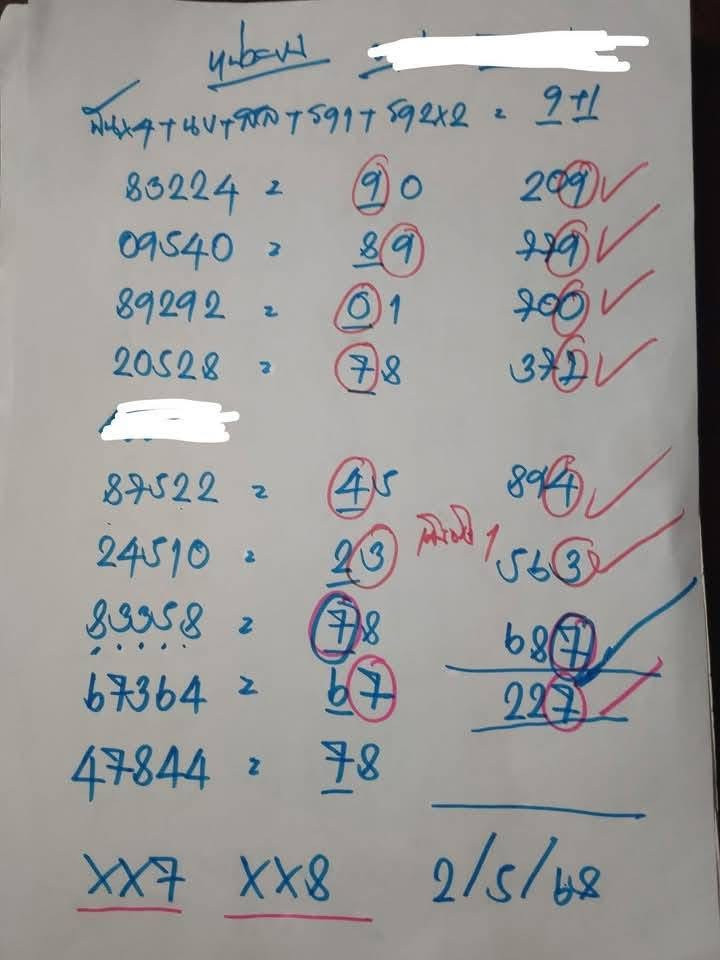 พันx4+ + + 591 + 592x2 = 9+1
83224 = 90 209
09540 = 89 779
89292 = 01 700
20528 = 78 377
87522 = 45 894
24510 = 23 1 563
83358 = 78 687
67364 = 67 227
47844 = 78
XX7 XX8 2/5/68